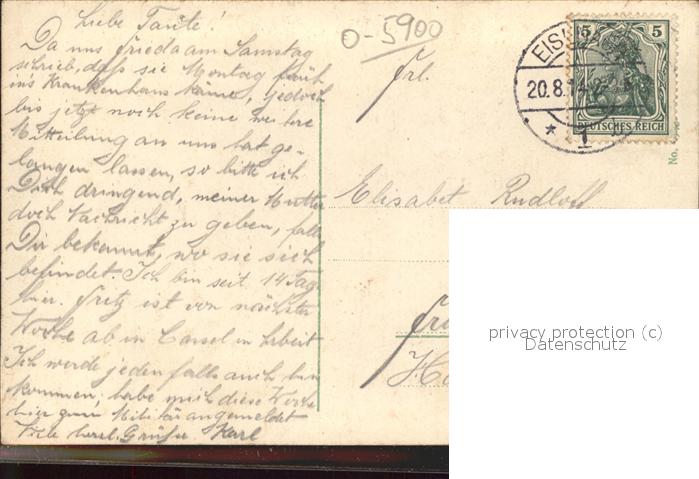 Liebe Tante!
Da uns Frieda am Samstag
schrieb, daß sie Montag früh
ins Krankenhaus käme, jedoch
bis jetzt noch keine weitere
Mitteilung an uns hat ge-
langen lassen, so bitte ich
Dich dringend, meiner Mutter
doch Nachricht zu geben, falls
Dir bekannt, wo sie sich
befindet. Ich bin seit 14 Tag.
hier. Fritz ist von nächster
Woche ab in Cassel in Arbeit
Ich werde jedenfalls auch
kommen, habe mich diese Woche
hier zum Militär angemeldet
Viele herzl. Grüße Karl
0-5900
Frl.
Elisabet Rudloff
EIS
20.8.1
* 1
5 5
DEUTSCHES REICH
No.
privacy protection (c)
Datenschutz